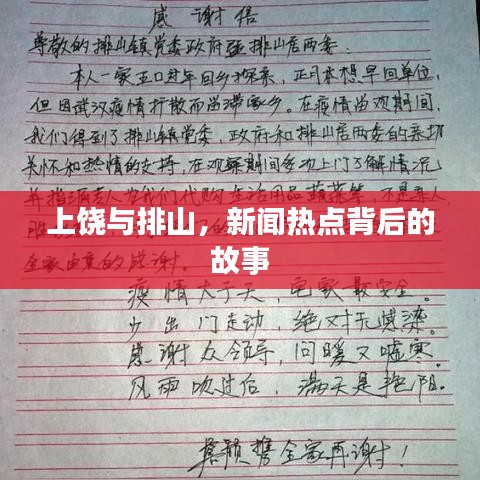 感谢信
尊敬的排山镇党委政府暨排山居两委:
本人一家五口过年回乡探亲,正月本想早回单位,
但因武汉疫情扩散而滞留家乡。在疫情观期间,
我们得到了排山镇党委,政府和排山居两委的亲切
关怀和热情的支持,在观察期间多次上门了解情况
并指派专人为我们代购生活用品蔬菜等,不是亲人
上饶与排山，新闻热点背后的
故事
全家由衷的感谢。
疫情大于天,宅家最安全。
少出门走动,绝对无感染。
感谢众领导,问暖又嘘寒。
风雨吹过后,满天是艳阳。
携全家再谢!